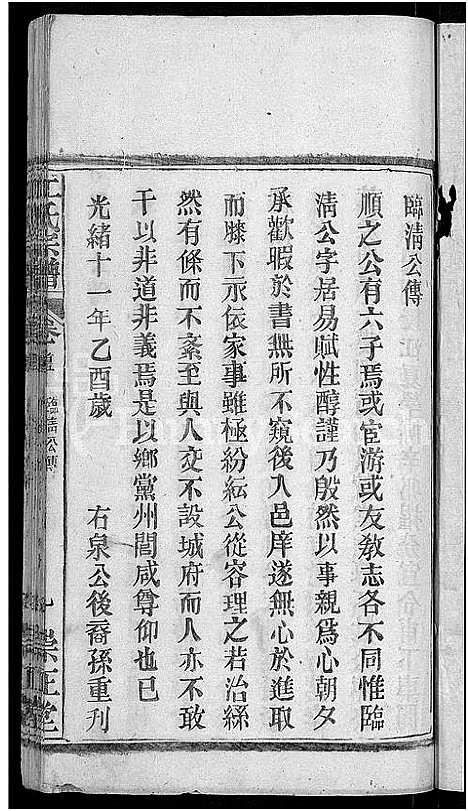 臨淸公傳
順之公有六子焉或宦游或友敎志各不同惟臨
淸公字居易賦性醇謹乃殷然以事親爲心朝夕
承歡暇於書無所不窺後入邑庠遂無心於進取
而膝下示依家事雖極紛紜公從容理之若治絲
然有條而不紊至與人交不設城府而人亦不敢
干以非道非義焉是以鄉黨州閭咸尊仰也已
光緒十一年乙酉歲　右泉公後裔孫重刋
江氏宗譜
卷
臨淸公傳
崇正堂